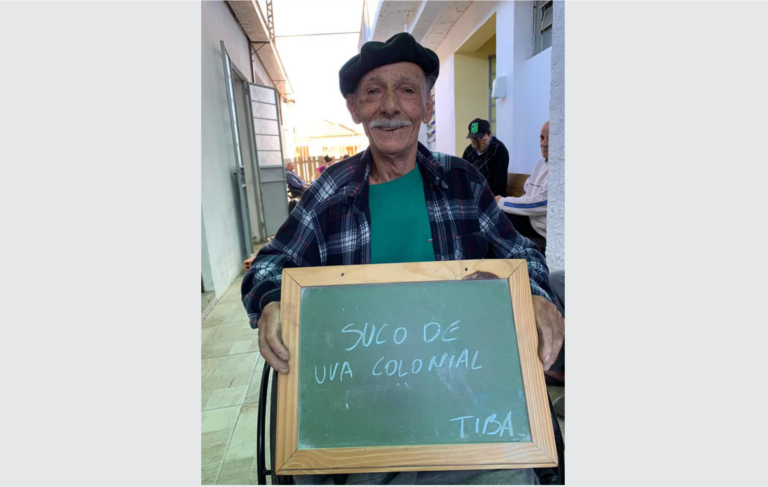 SUCO DE
UVA COLONIAL
TIBA